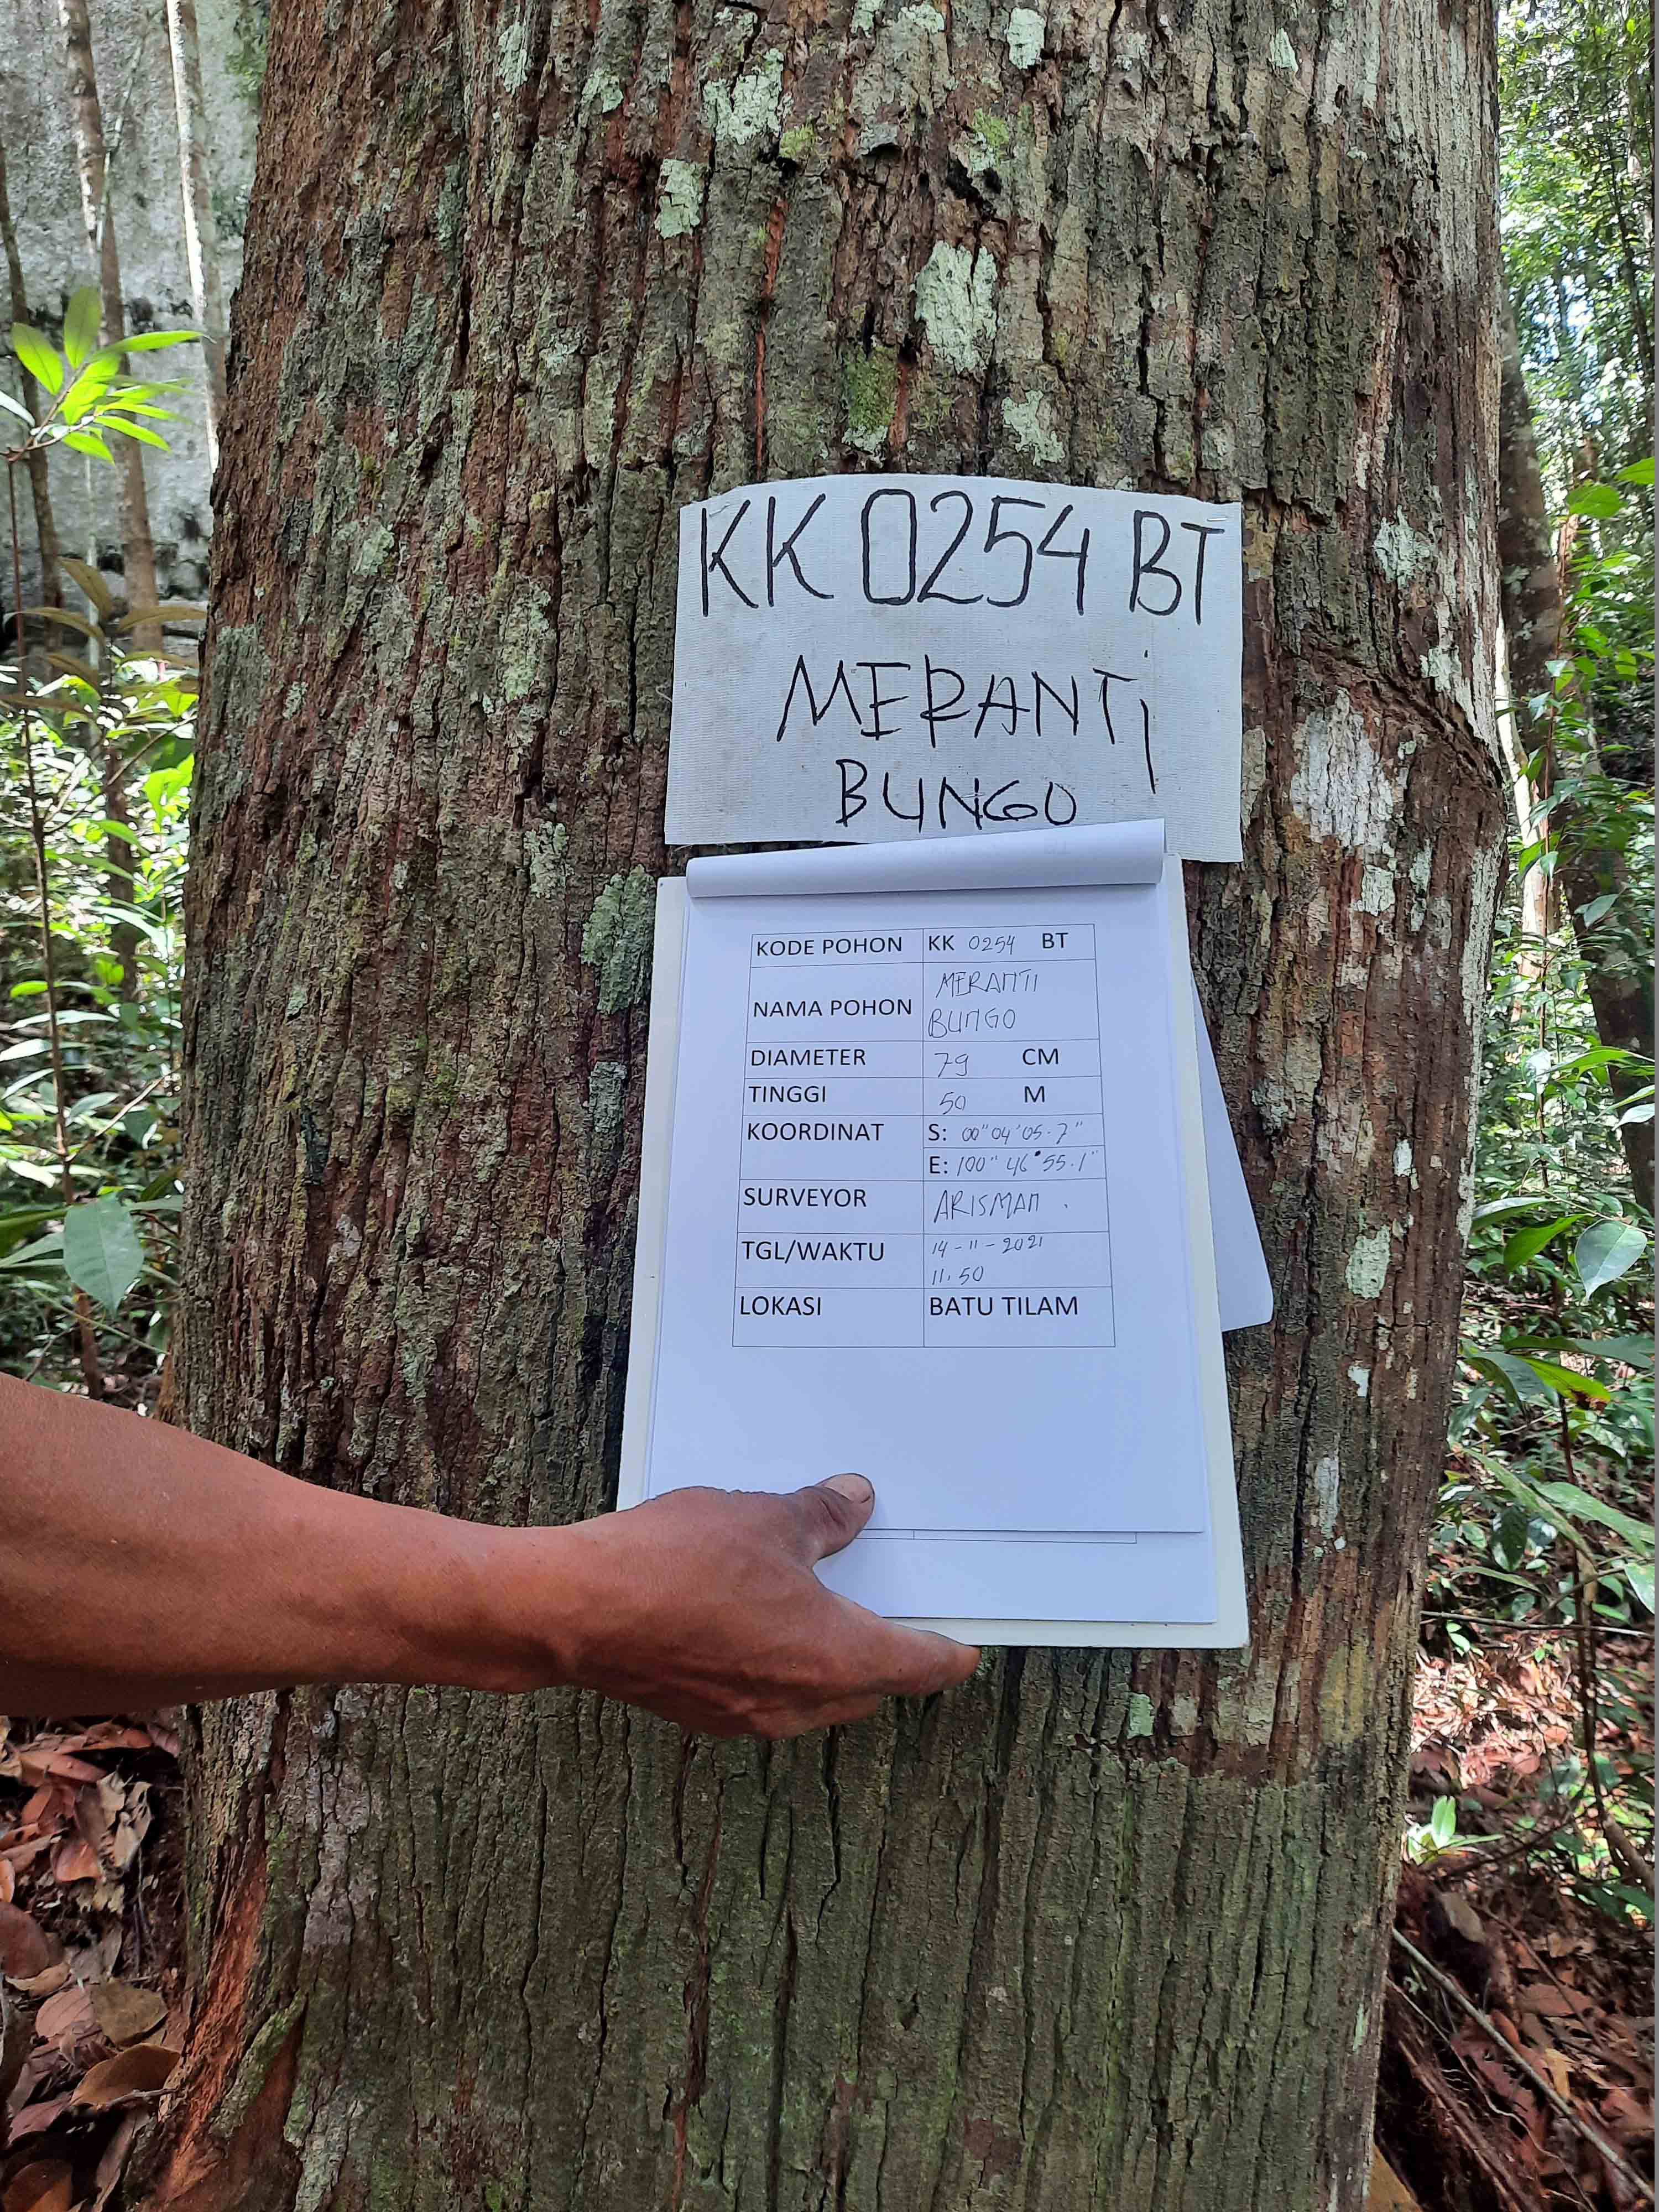 KK 0254 BT
MERANTi
BUNGO
KODE POHON KK 0254 BT
NAMA POHON MERANTI BUNGO
DIAMETER 79 CM
TINGGI 50 M
KOORDINAT S: 00"04'05.7"
E: 100"46°55.1"
SURVEYOR ARISMAN .
TGL/WAKTU 14-11-2021
11.50
LOKASI BATU TILAM